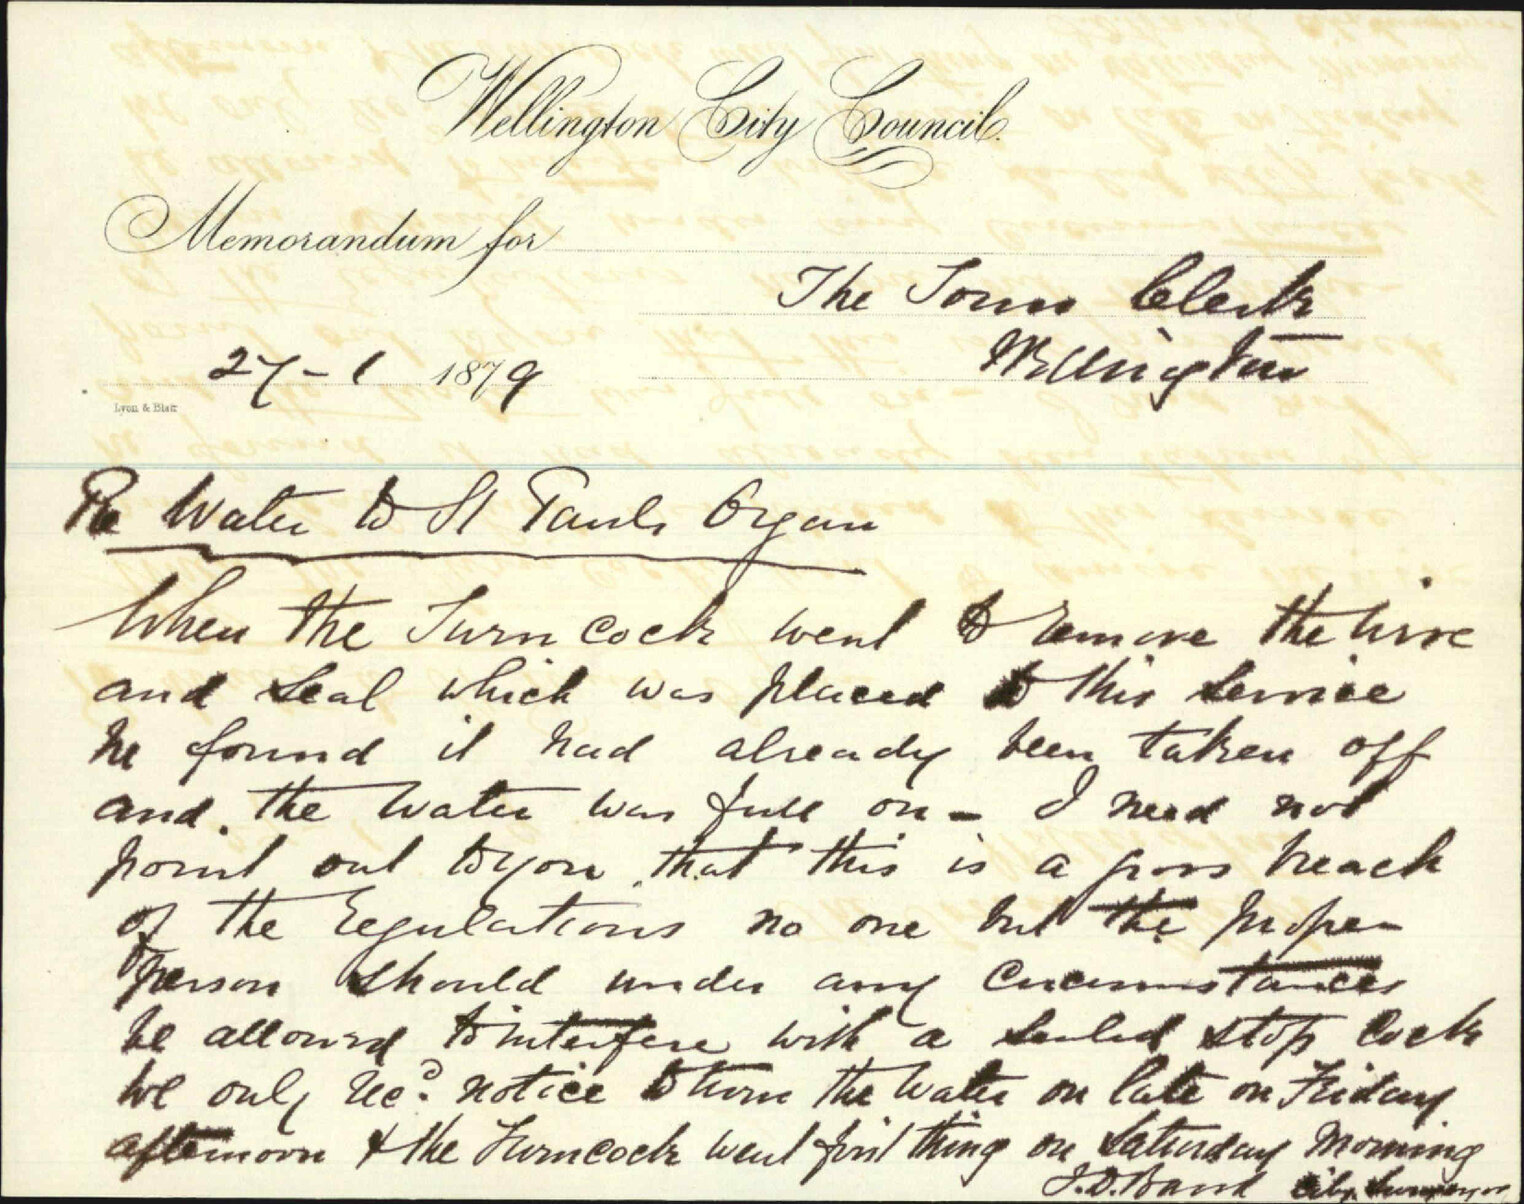 Wellington City Council.
Memorandum for
The Town Clerk
Wellington
27-1 1879
Lyon & Blair
Re Water to St Pauls Organ
When the Turncock went to remove the wire
and seal which was placed to this service
he found it had already been taken off
and the water was full on - I need not
point out to you that this is a gross breach
of the regulations no one but the proper
person should under any circumstances
be allowed to interfere with a sealed stop cock
We only recd. notice to turn the water on late on Friday
afternoon & the Turncock went first thing on Saturday Morning
J.D. Baird City Surveyor